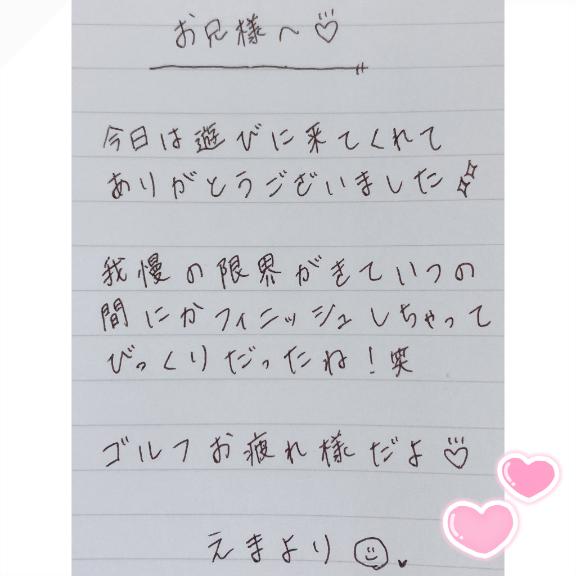 お兄様へ♡
今日は遊びに来てくれて
ありがとうございました✨
我慢の限界がきていつの
間にかフィニッシュしちゃって
びっくりだったね！笑
ゴルフお疲れ様だよ♡
えまより☺♥